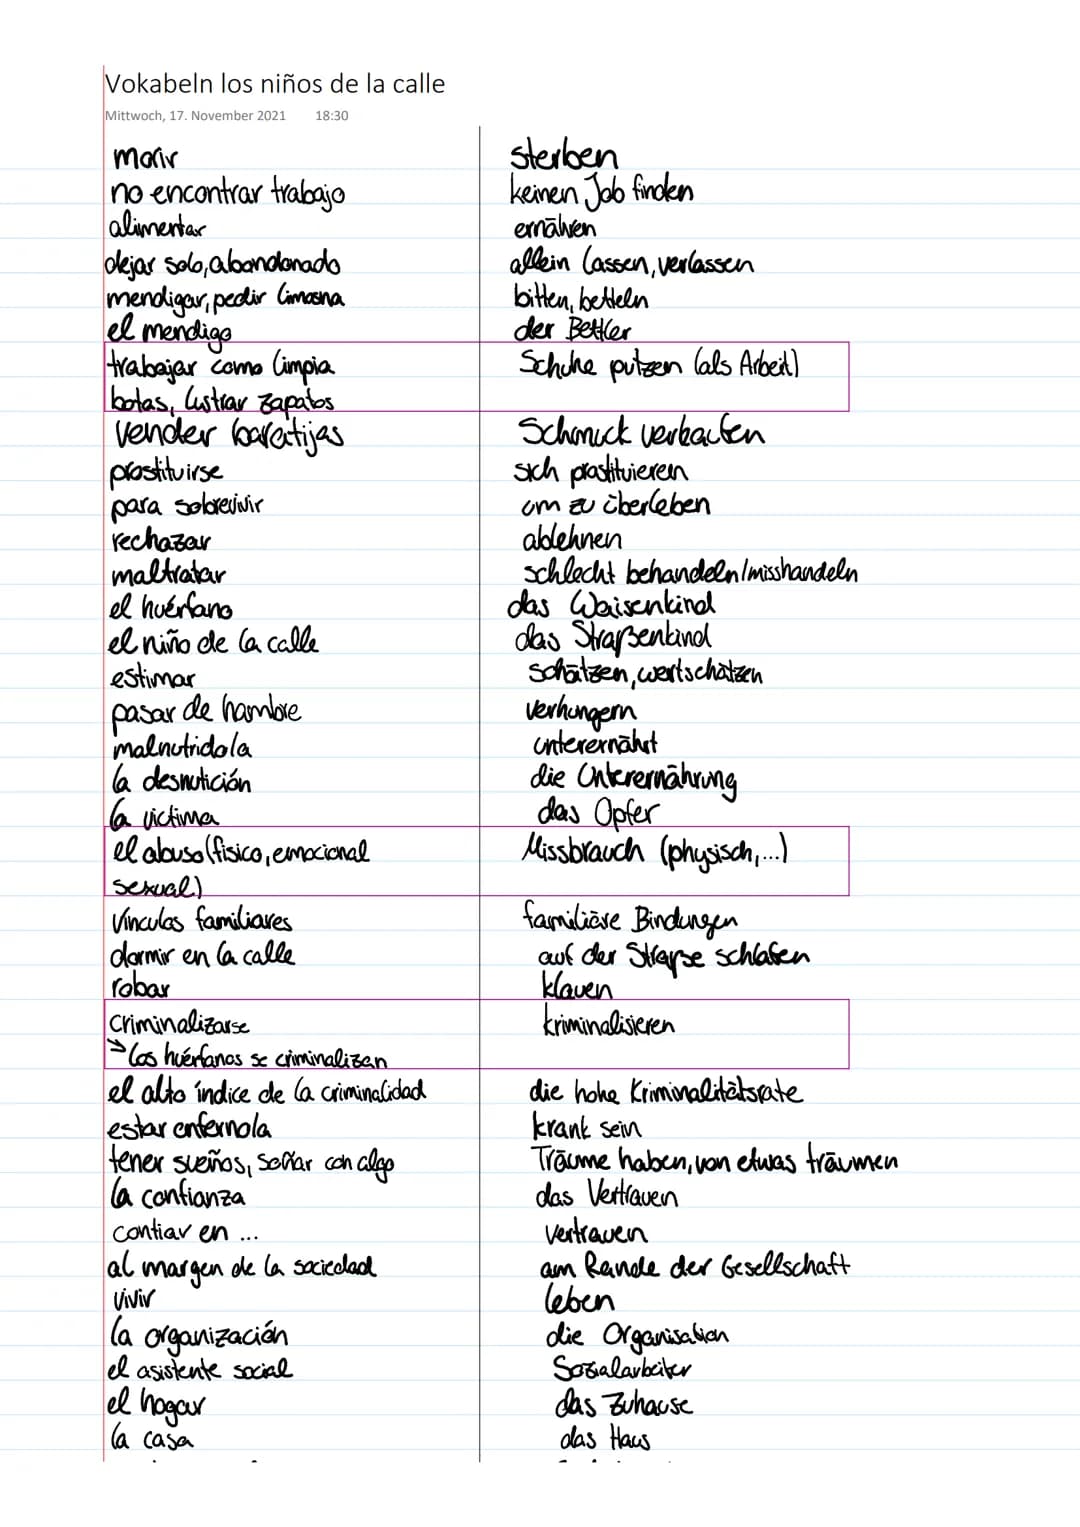 Vokabeln los niños de la calle
Mittwoch, 17. November 2021 18:30
morir sterben
no encontrar trabajo keinen Job finden
alimentar ernähren
dejar solo, abandonado allein lassen, verlassen
mendigar, pedir limosna bitten, betteln
el mendigo der Bettler
trabajar como limpia Schuhe putzen (als Arbeit)
botas, lustrar zapatos
vender baratijas Schmuck verkaufen
prostituirse sich prostituieren
para sobrevivir um zu überleben
rechazar ablehnen
maltratar schlecht behandeln/misshandeln
el huérfano das Waisenkind
el niño de la calle das Straßenkind
estimar schätzen, wertschätzen
pasar de hambre verhungern
malnutrido/a unterernährt
la desnutición die Unterernährung
la victima das Opfer
el abuso (fisico, emocional Missbrauch (physisch,...)
sexual)
Vinculos familiares familiäre Bindungen
dormir en la calle auf der Straße schlafen
robar klauen
criminalizarse kriminalisieren
→ los huérfanos se criminalizan
el alto índice de la criminalidad die hohe Kriminalitätsrate
estar enfermo/a krank sein
tener sueños, soñar con algo Träume haben, von etwas träumen
la confianza das Vertrauen
confiar en ... vertrauen
al margen de la sociedad am Rande der Gesellschaft
vivir leben
la organización die Organisation
el asistente social Sozialarbeiter
el hogar das Zuhause
la casa das Haus